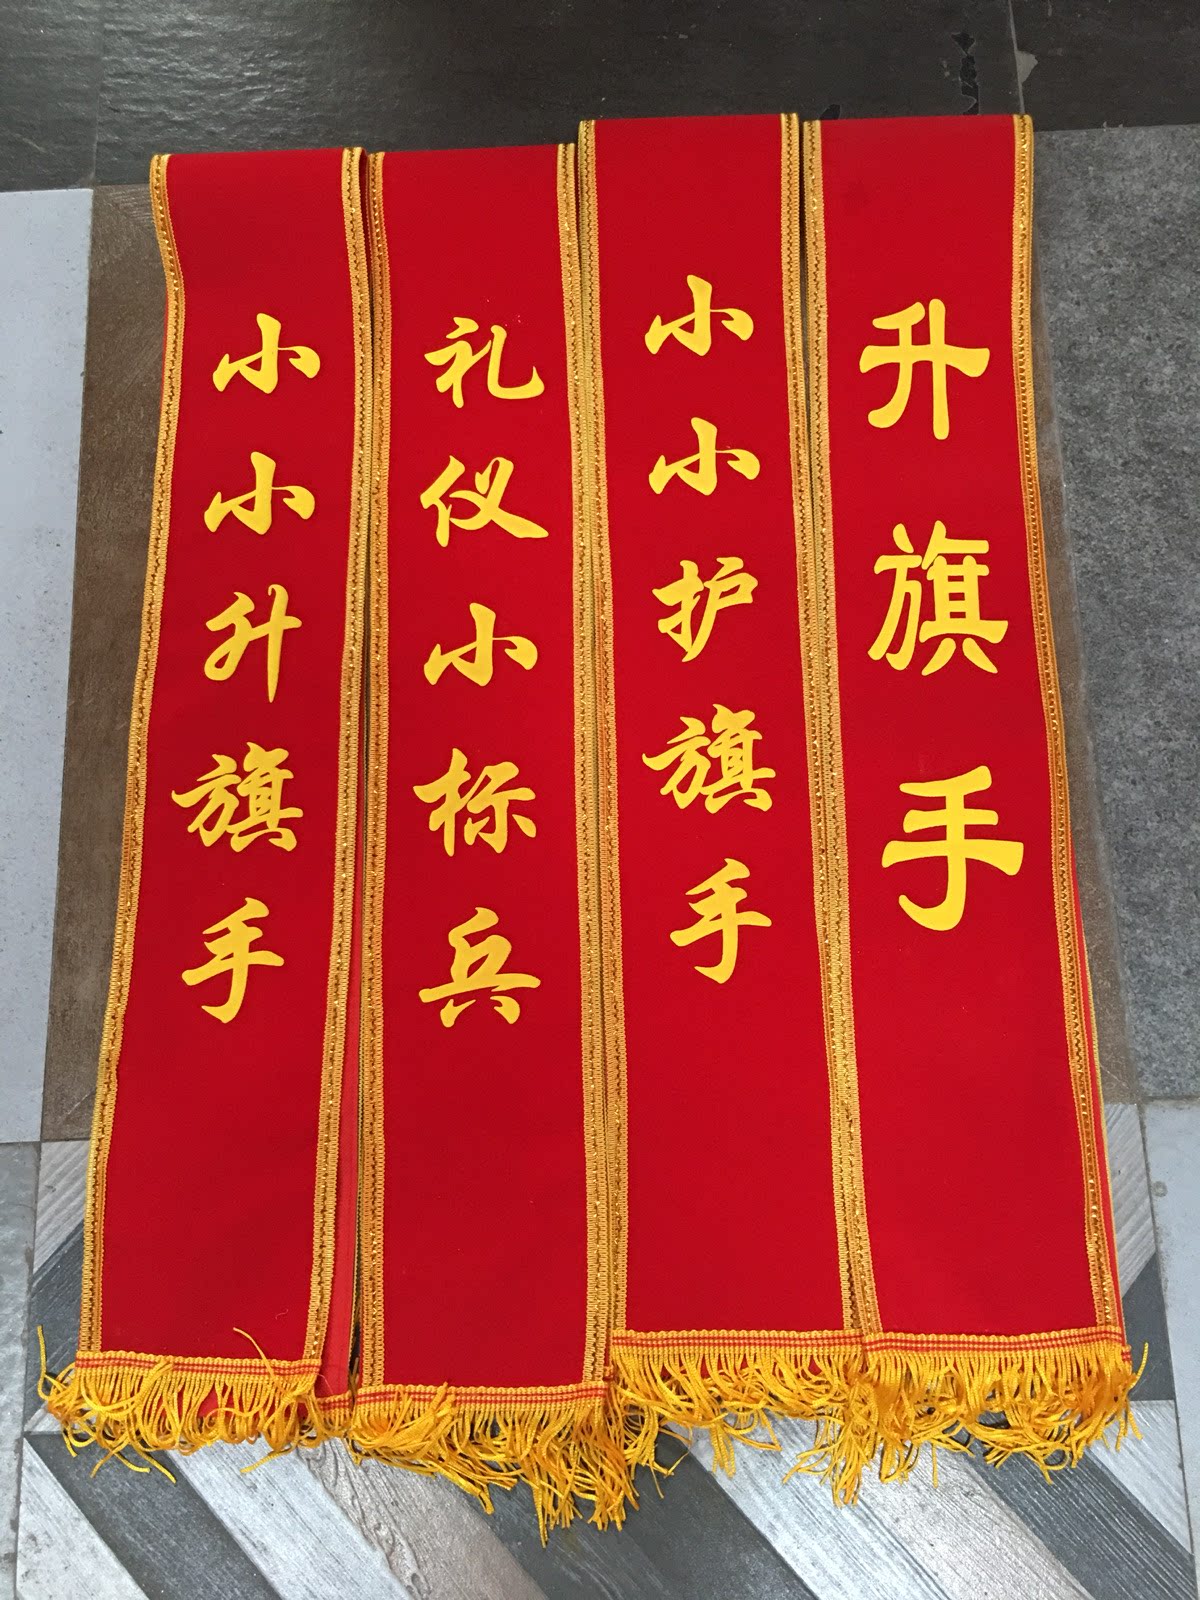 小小升旗手
礼仪小标兵
小小护旗手
升旗手